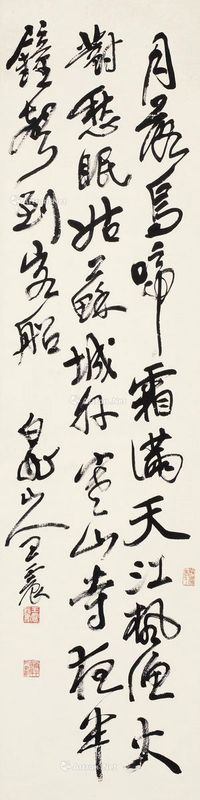 月落烏啼霜滿天江楓漁火
對愁眠姑蘇城外寒山寺夜半
鐘聲到客船
白龍山人王震